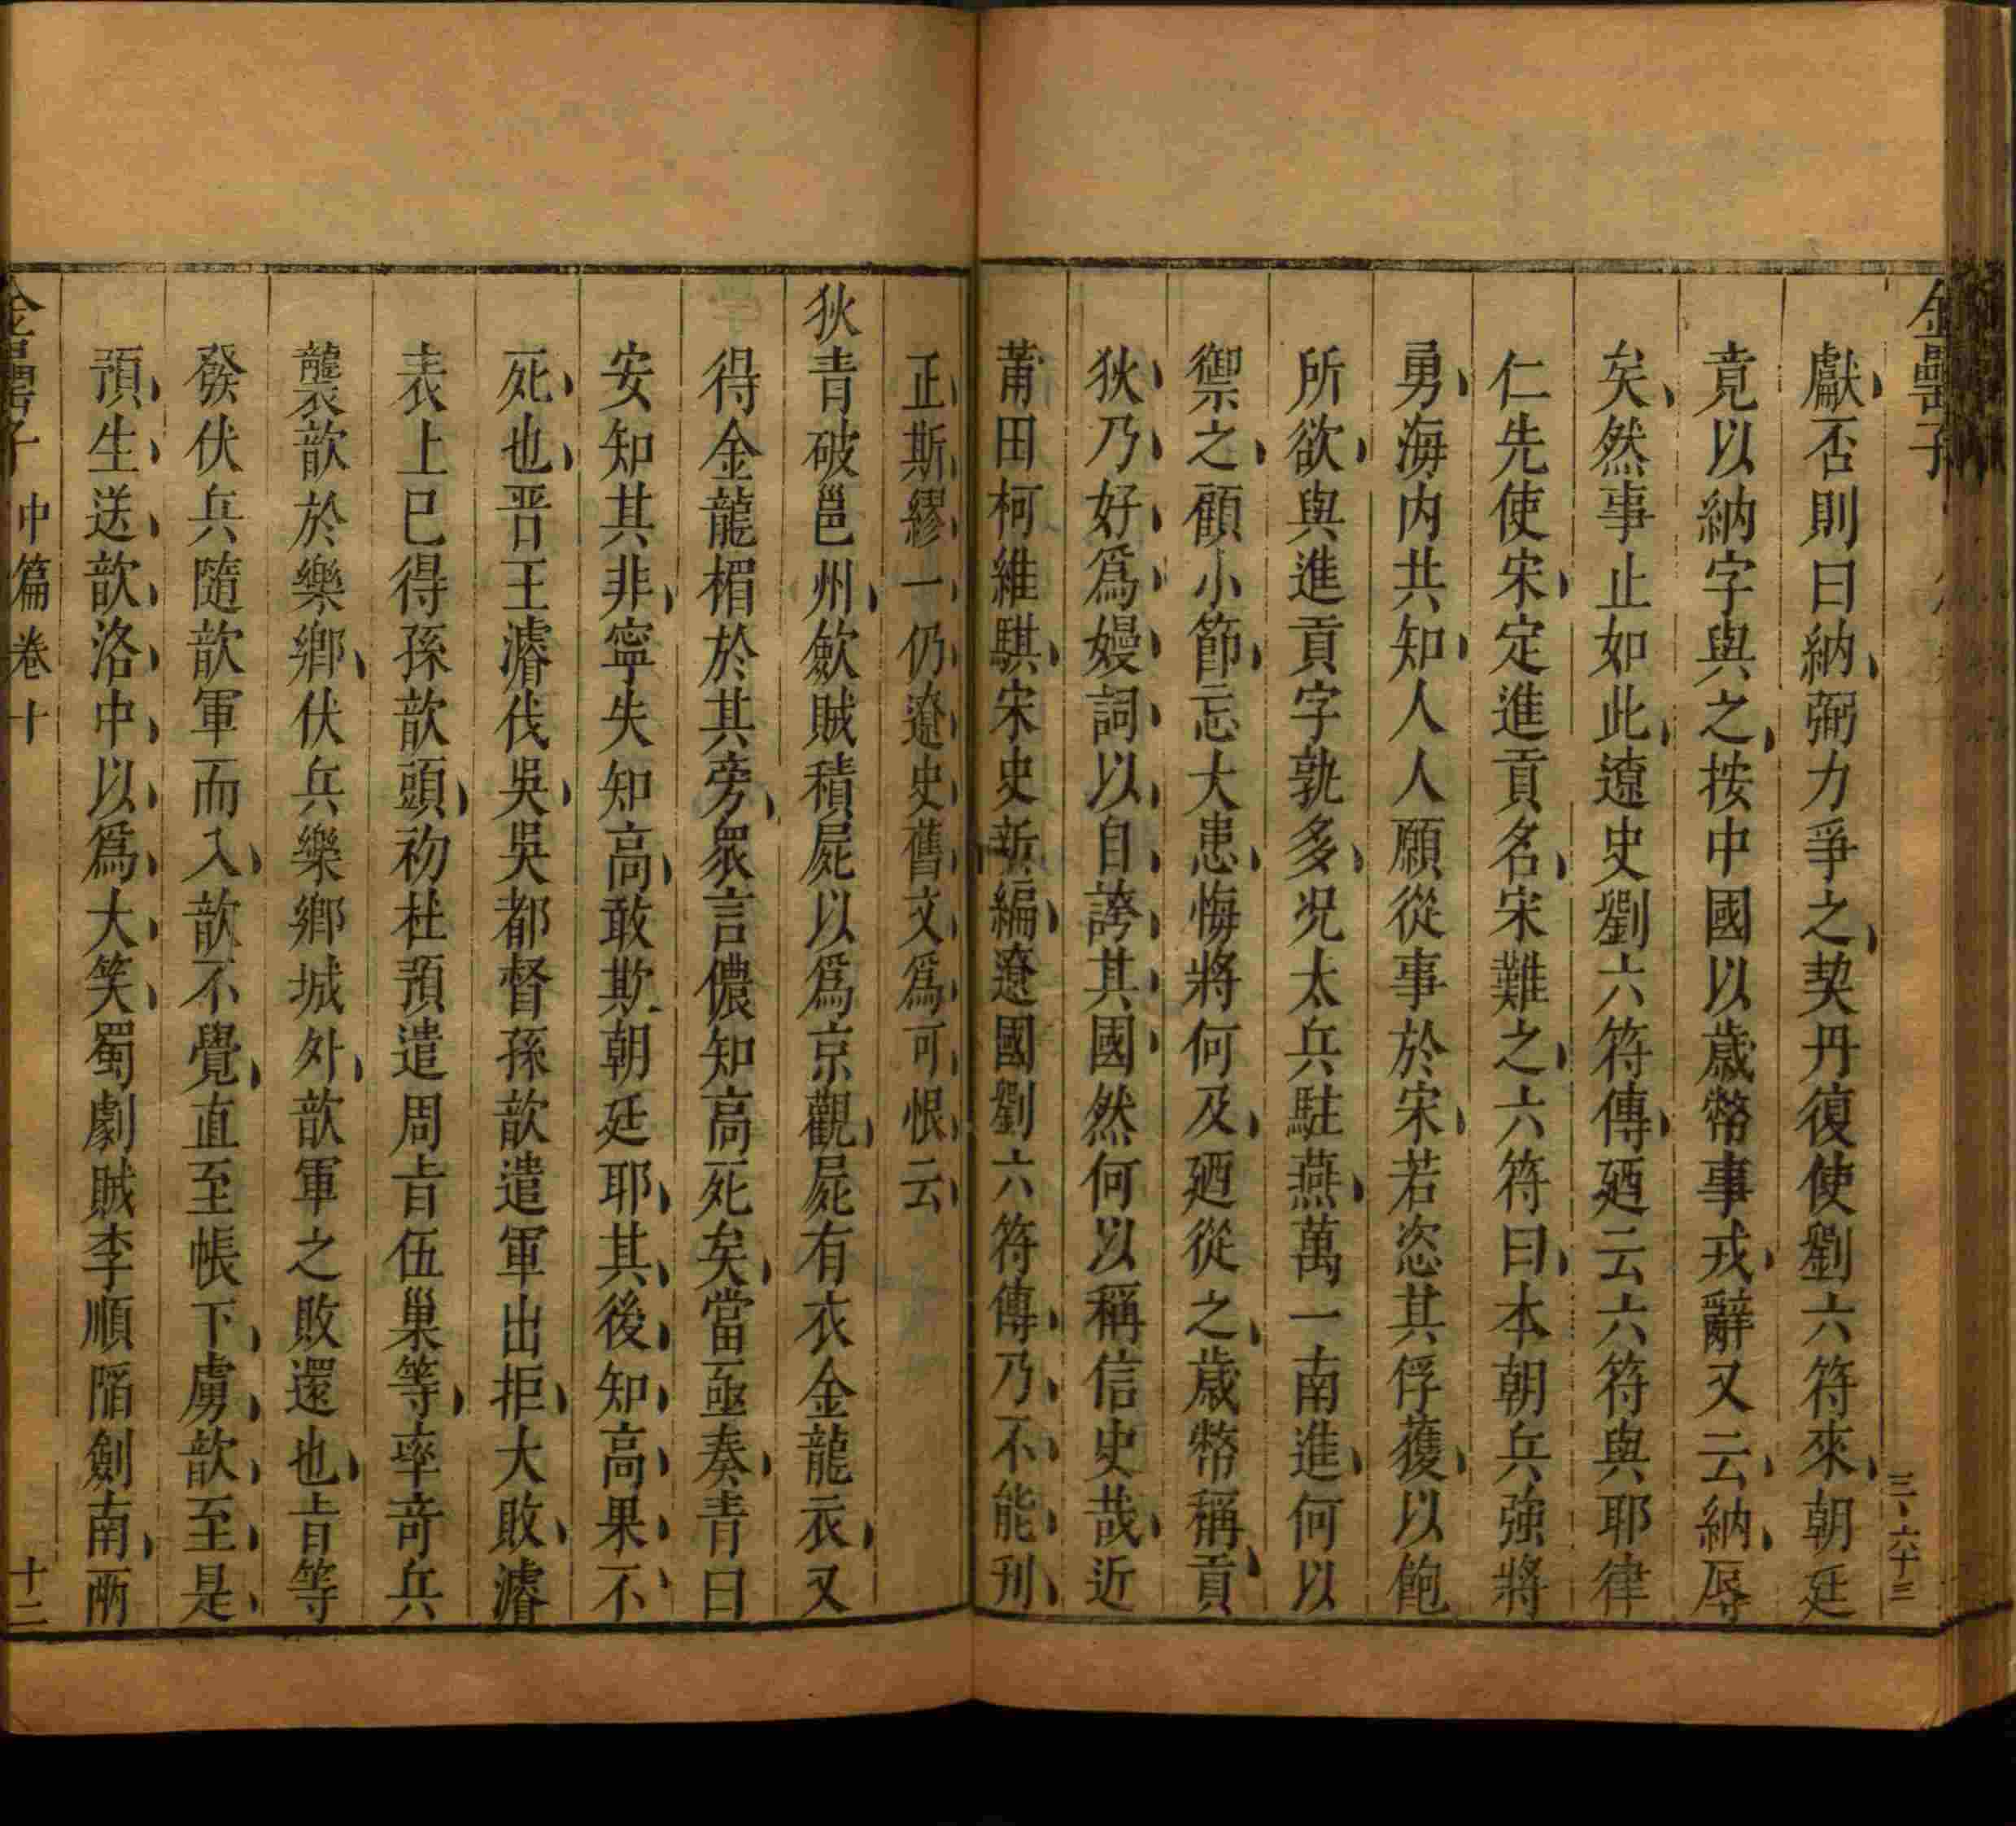 金罍子
三、六十三
獻否則曰納弼力爭之契丹復使劉六符來朝廷
竟以納字與之按中國以歲幣事戎辭又云納辱
矣然事止如此遼史劉六符傳廼云六符與耶律
仁先使宋定進貢名宋難之六符曰本朝兵強將
勇海内共知人人願從事於宋若恣其俘獲以飽
所欲與進貢字孰多况太兵駐燕萬一南進何以
禦之顧小節忘大患悔將何及廼從之歲幣稱貢
狄乃好爲嫚詞以自誇其國然何以稱信史哉近
莆田柯維騏宋史新編遼國劉六符傳乃不能刋
正斯繆一仍遼史舊文爲可恨云
狄青破邕州斂賊積屍以爲京觀屍有衣金龍衣又
得金龍楯於其旁衆言儂知高死矣當亟奏青曰
安知其非寧失知高敢欺朝廷耶其後知高果不
死也晉王濬伐吳吳都督孫歆遣軍出拒大敗濬
表上已得孫歆頭初杜預遣周㫖伍巢等率奇兵
襲歆於樂鄉伏兵樂鄉城外歆軍之敗還也㫖等
發伏兵隨歆軍而入歆不覺直至帳下虜歆至是
預生送歆洛中以爲大笑蜀劇賊李順陷劍南兩
金罍子 中篇卷十
十二